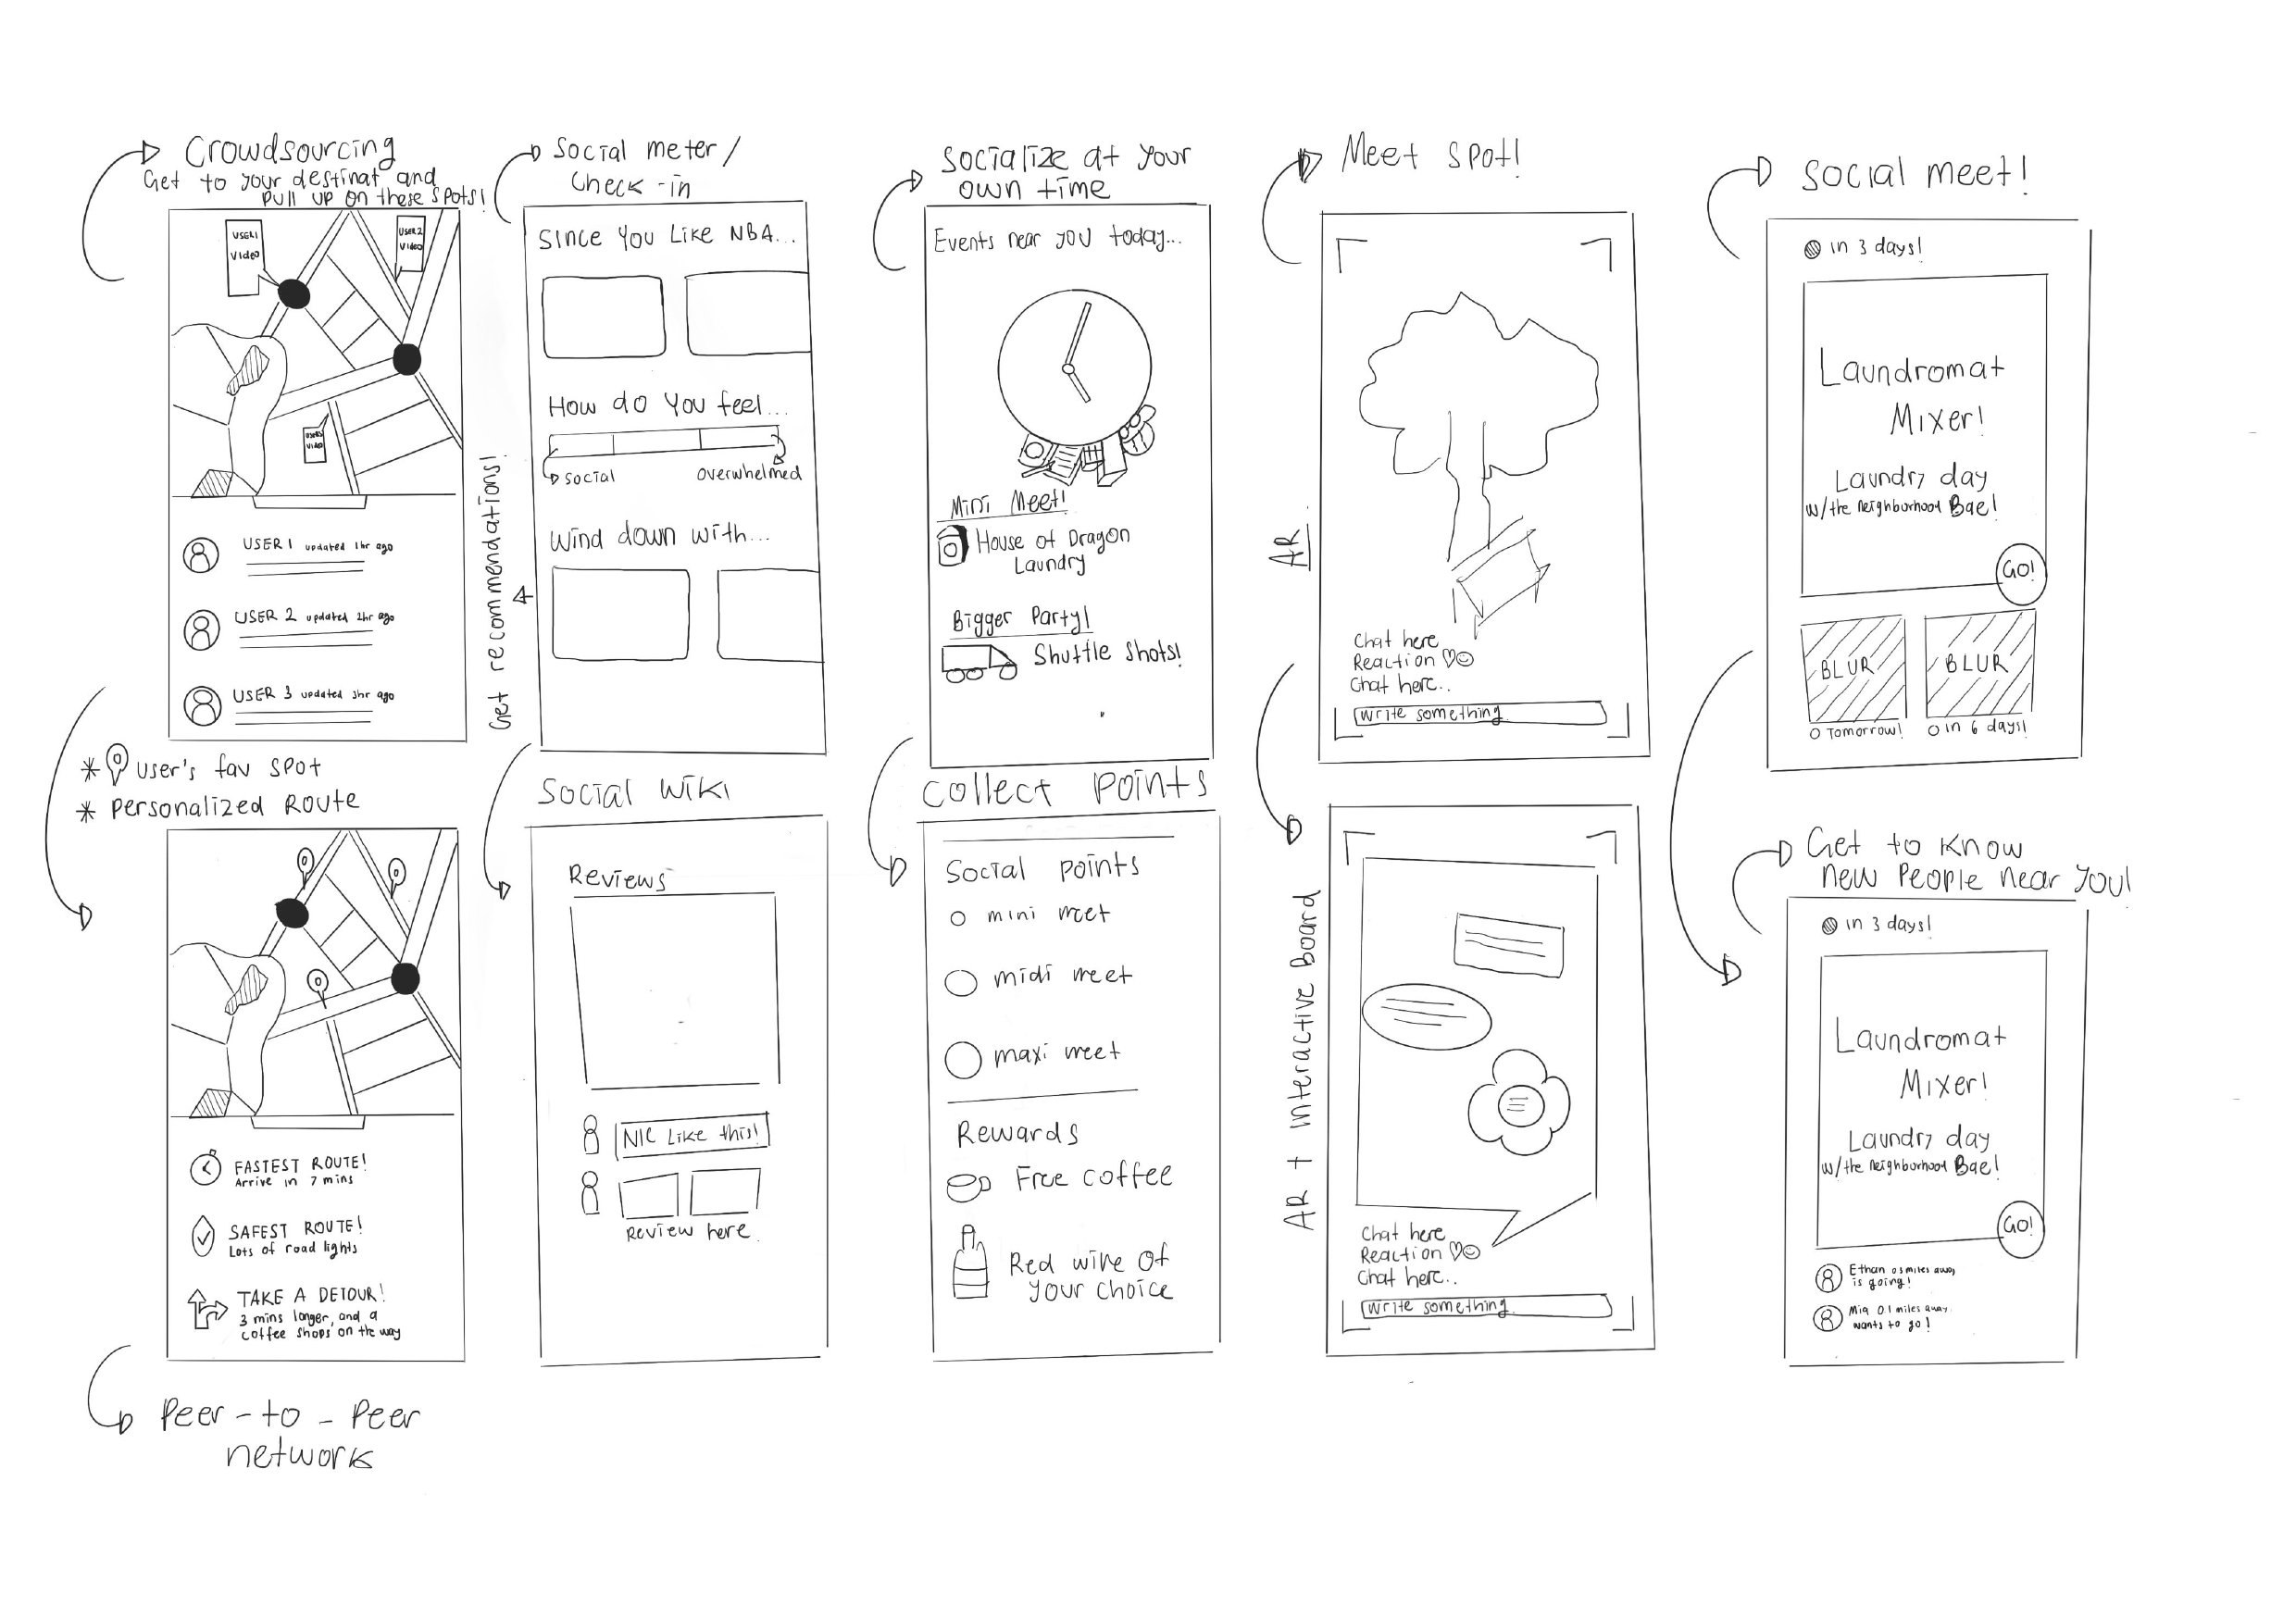 Crowdsourcing
Get to your destinat and
pull up on these spots!
USER1
Video
USER2
Video
USER3
Video
USER 1 updated 1hr ago
USER 2 updated 2hr ago
USER 3 updated 3hr ago
* User's fav spot
* Personalized Route
FASTEST ROUTE!
Arrive in 7 mins
SAFEST ROUTE!
Lots of road lights
TAKE A DETOUR!
3 mins longer, and a
coffee shops on the way
Peer-to-Peer
network
Social meter/
Check-in
Get recommendations!
Since You Like NBA...
How do You feel...
Social
Overwhelmed
Wind down with...
Social Wiki
Reviews
NIC Like this!
Review here.
Socialize at your
own time
Events near you today...
Mini Meet!
House of Dragon
Laundry
Bigger Party!
Shuttle Shots!
Collect Points
Social points
mini meet
midi meet
maxi meet
Rewards
Free coffee
Red wine of
your choice
Meet Spot!
AR
Chat here
Reaction ♡☺
Chat here..
Write something
AR + Interactive Board
Chat here
Reaction ♡☺
Chat here..
Write something
Social meet!
in 3 days!
Laundromat
Mixer!
Laundry day
w/the neighborhood Bae!
GO!
BLUR
BLUR
Tomorrow!
in 6 days!
Get to know
new people near you!
in 3 days!
Laundromat
Mixer!
Laundry day
w/the neighborhood Bae!
GO!
Ethan 0.3 miles away
is going!
Mia 0.1 miles away
wants to go!